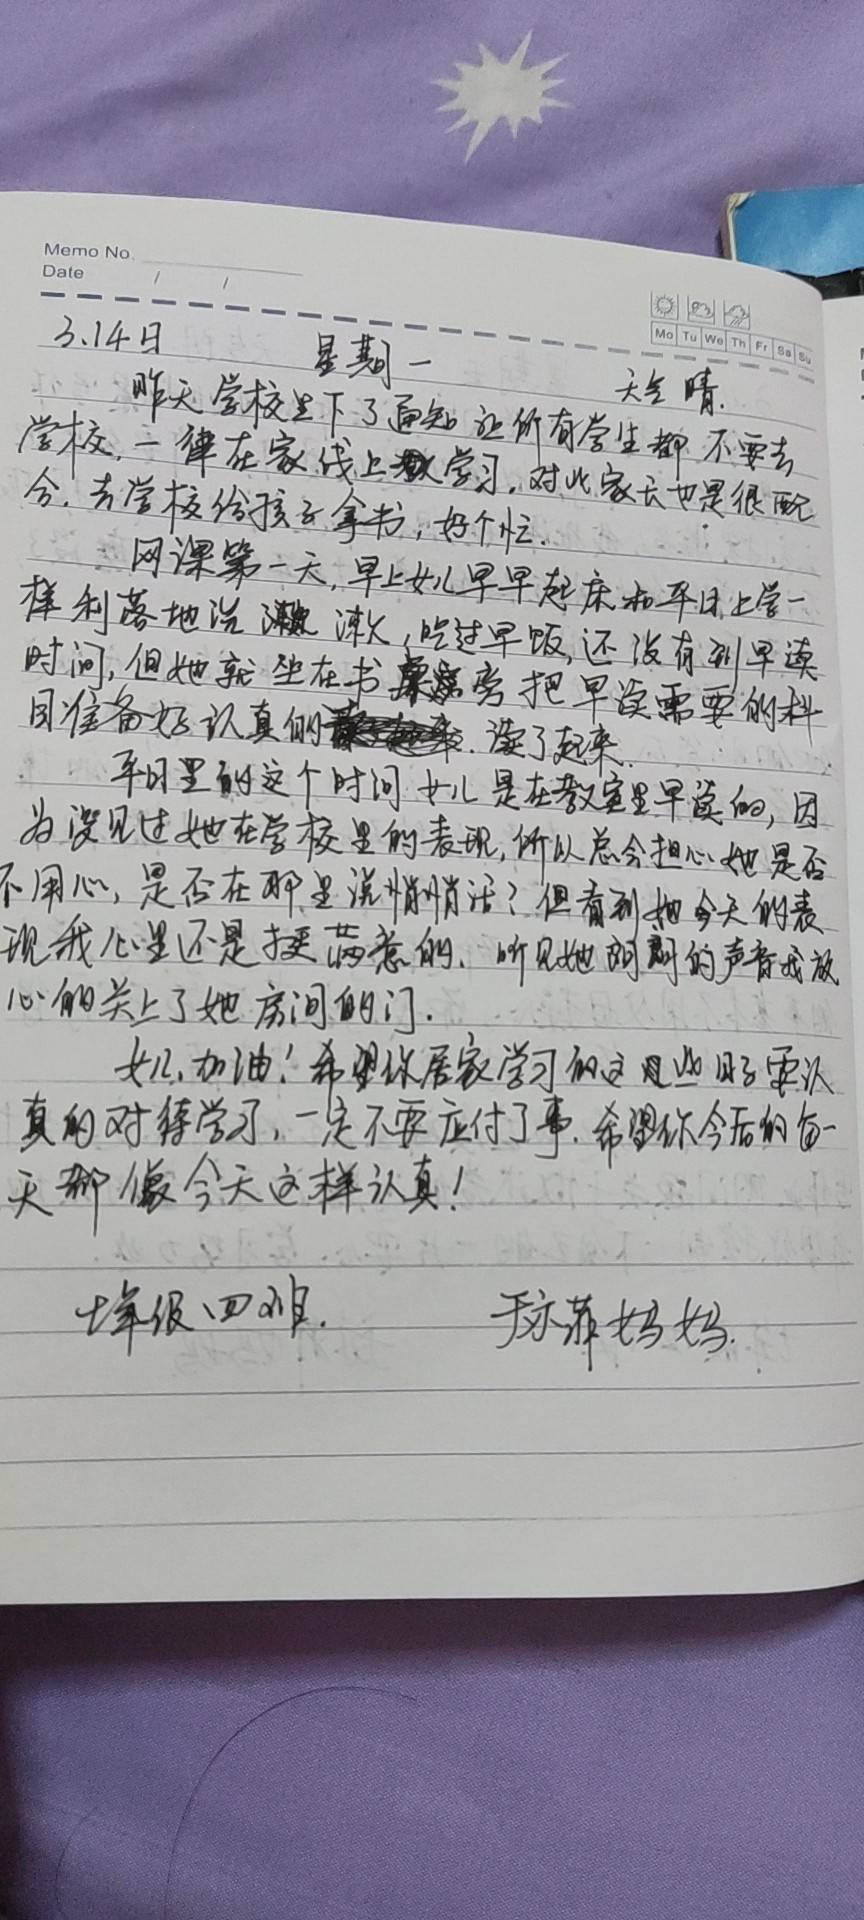 Memo No.
Date / /
Mo Tu We Th Fr Sa Su
3.14日 星期一 天气 晴.
昨天学校里下了通知 让所有学生都不要去
学校,一律在家线上学习,对此家长也是很配
合.去学校给孩子拿书,好个忙.
网课第一天,早上女儿早早起床和平日上学一
样利落地洗漱,吃过早饭,还没有到早读
时间,但她就坐在书桌旁把早读需要的科
目准备好认真的读了起来.
平日里的这个时间女儿是在教室里早读的,因
为没见过她在学校里的表现,所以总会担心她是否
不用心,是否在那里说悄悄话?但看到她今天的表
现我心里还是挺满意的.听见她朗朗的声音我放
心的关上了她房间的门.
女儿,加油!希望你居家学习的这些日子要认
真的对待学习,一定不要应付了事.希望你今后的每一
天都像今天这样认真!
七年级四班. 于亦菲妈妈.